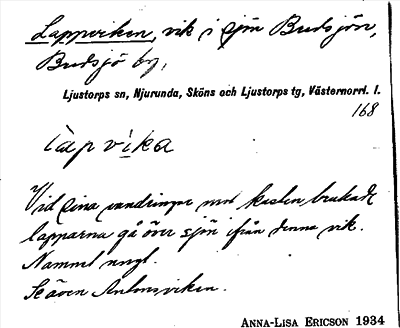 Lappviken, vik i sjön Bredsjön,
Bredsjö by,
Ljustorps sn, Njurunda, Sköns och Ljustorps tg, Västernorrl. l.
168
làpvika
Vid sina vandringar mot kusten brukade
lapparna gå över sjön ifrån denna vik.
Namnet
Se även Antonsviken.
ANNA-LISA ERICSON 1934